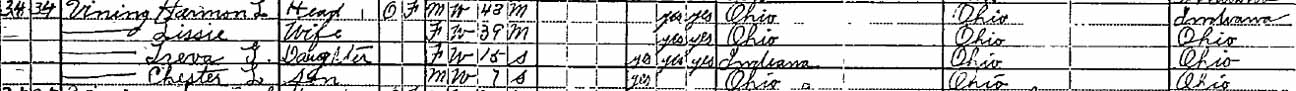 34 34 Vining Harmon L. Head 1 O F M W 43 M yes yes Ohio Ohio Indiana
— Lissie Wife F W 39 M yes yes Ohio Ohio Ohio
— Treva Y. Daughter F W 15 S yes yes yes Indiana Ohio Ohio
— Chester L. Son M W 7 S yes Ohio Ohio Ohio